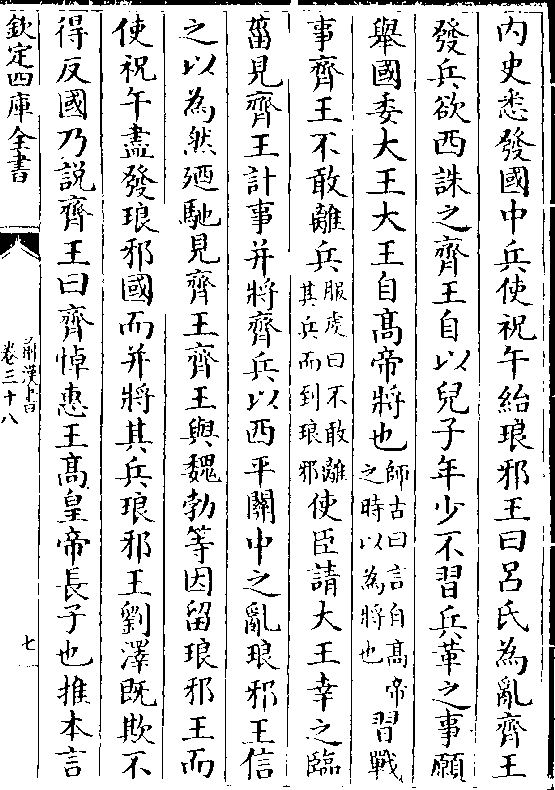 内史悉發國中兵使祝午紿琅邪王曰呂氏為亂齊王
發兵欲西誅之齊王自以兒子年少不習兵革之事願
舉國委大王大王自髙帝將也師古曰言自髙帝之時以為將也習戰
事齊王不敢離兵服虔曰不敢離其兵而到琅邪使臣請大王幸之臨
菑見齊王計事并將齊兵以西平關中之亂琅邪王信
之以為然廼馳見齊王齊王與魏勃等因留琅邪王而
使祝午盡發琅邪國而并將其兵琅邪王劉澤既欺不
得反國乃説齊王曰齊悼惠王髙皇帝長子也推本言
欽定四庫全書
前漢書
卷三十八
七